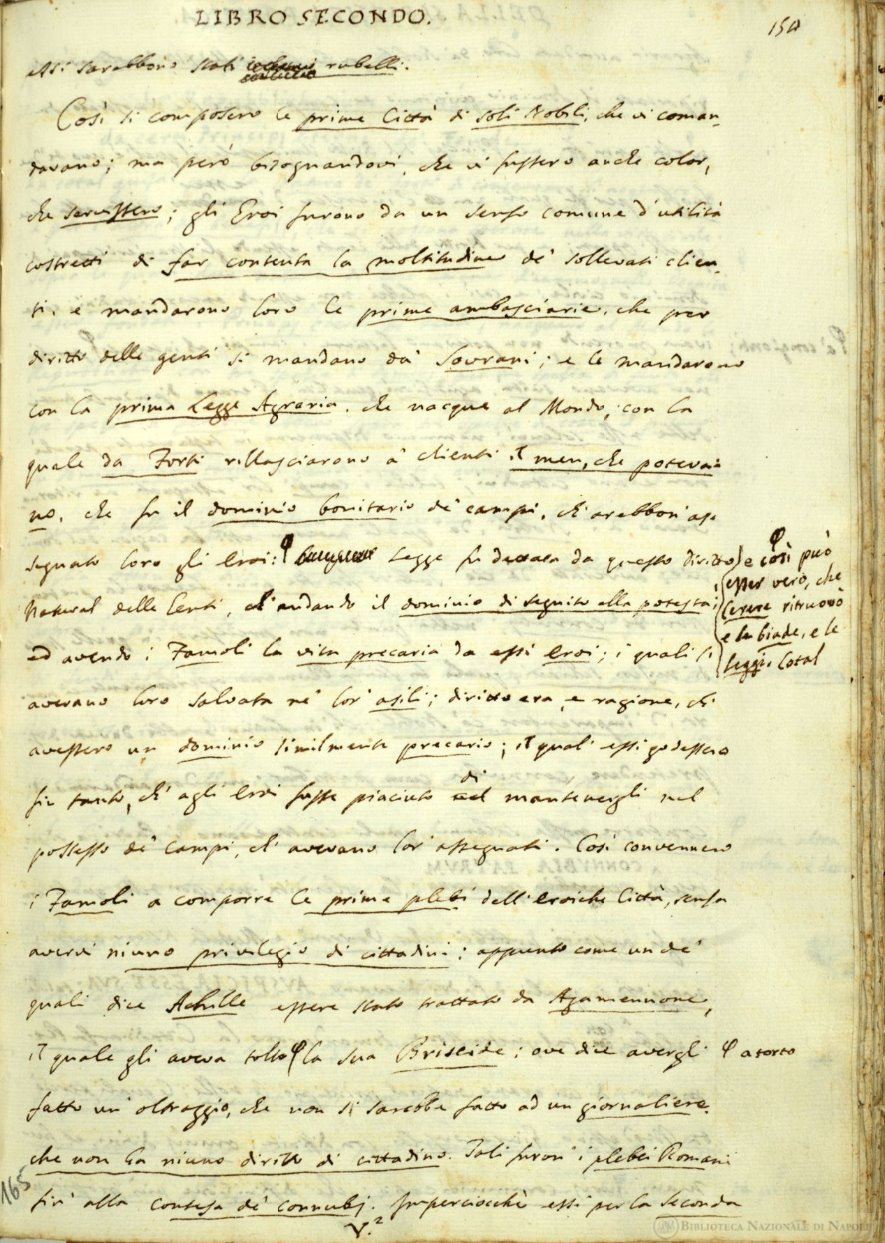 LIBRO SECONDO.
154
essi sarebbono stati rubelli.
Così si composero le prime Città di soli Nobili, che vi coman-
davano; ma però bisognandovi, che vi fussero anche color,
che servissero; gli Eroi furono da un senso comune d'utilità
costretti di far contenta la moltitudine de' sollevati clien-
ti, e mandarono loro le prime ambasciarie, che per
diritto delle genti si mandano da' Sovrani; e le mandarono
con la prima Legge Agraria, che nacque al Mondo; con la
quale da Forti rillasciarono a' clienti il men, che poteva-
no, che fu il dominio bonitario de' campi, ch'arebbon' as-
segnato loro gli Eroi: φ Legge fu dettata da questo diritto
φ e così può
esser vero, che
Cerere ritruovò
e le biade, e le
leggi. Cotal
Natural delle Genti, ch'andando il dominio di seguito alla potestà;
ed avendo i Famoli la vita precaria da essi Eroi; i quali l'
avevano loro salvata ne' lor' asili; diritto era, e ragione, ch'
avessero un dominio similmente precario; il qual' essi godessero
fin tanto, ch' agli Eroi fusse piaciuto di mantenergli nel
possesso de' campi, ch' avevano lor' assegnati. Così convennero
i Famoli a comporre le prime plebi dell'eroiche Città, senza
avervi niuno privilegio di cittadini: appunto come un de'
quali dice Achille essere stato trattato da Agamennone,
il quale gli aveva tolto φ la sua Briseide; ove dice avergli
φ a torto
fatto un' oltraggio, che non si sarebbe fatto ad un giornaliere,
che non ha niuno diritto di cittadino. Tali furon' i plebei Romani
fin' alla contesa de' connubj. Imperciocchè essi per la Seconda
165
V.2
BIBLIOTECA NAZIONALE DI NAPOLI